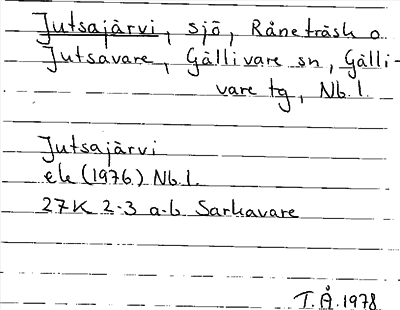 Jutsajärvi, sjö, Råneträsk o.
Jutsavare, Gällivare sn, Gälli-
vare tg, Nb.l.
Jutsajärvi
ek (1976) Nb.l.
27K 2-3 a-b Sarkavare
T.Å.1978